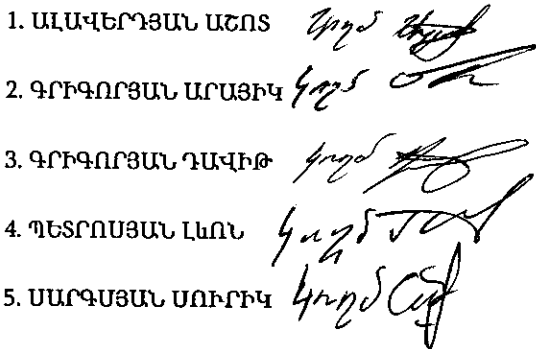 1. ԱԼԱՎԵՐԴՅԱՆ ԱՇՈՏ կողմ
2. ԳՐԻԳՈՐՅԱՆ ԱՐԱՅԻԿ կողմ
3. ԳՐԻԳՈՐՅԱՆ ԴԱՎԻԹ կողմ
4. ՊԵՏՐՈՍՅԱՆ ԼևՈՆ կողմ
5. ՍԱՐԳՍՅԱՆ ՍՈՒՐԻԿ կողմ